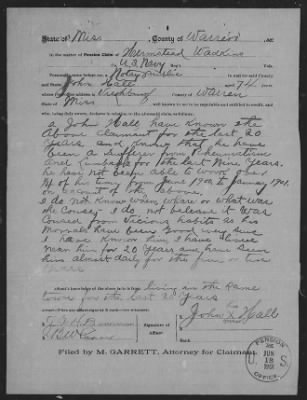 State of Miss County of Warren ss:
In the matter of Pension Claim of Hermstead Watkins
U.S. Navy Vols.
Personally came before me, a Notary Public in and for said County
and State John Hall aged 74 years
whose Post address is Vicksburg County of Warren
State of Miss well known to me to be reputable and entitled to credit, and
who, being duly sworn
I John Hall have Known the
above claimant for the last 20
years and Know that he have
been a sufferer from Rheumatism
and for the last Nine years.
he have not been able to work over
1/4 of his time from June 1900 to January 1901.
on account of the above.
I do not Know when, where or what was
the Cause I do not believe it was
Caused from vicious habits as his
Morrals have been Good ever since
I have Known him I have lived
near him for 20 years and have seen
him almost daily for the five or ten
years
Affiant's knowledge of the above facts is from living in the same
town for the last 20 years
his
John X Hall
Signature of
Affiant
Filed by M. GARRETT, Attorney for Claimant.
U.S. PENSION OFFICE
JUN
18
1901